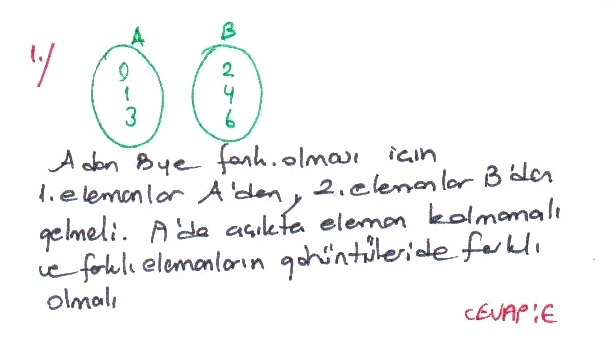 1./
A B
0 2
1 4
3 6
A dan B ye fonk. olması için
1. elemanlar A'dan, 2. elemanlar B'den
gelmeli. A'da açıkta eleman kalmamalı
ve farklı elemanların görüntüleride farklı
olmalı
CEVAP: E